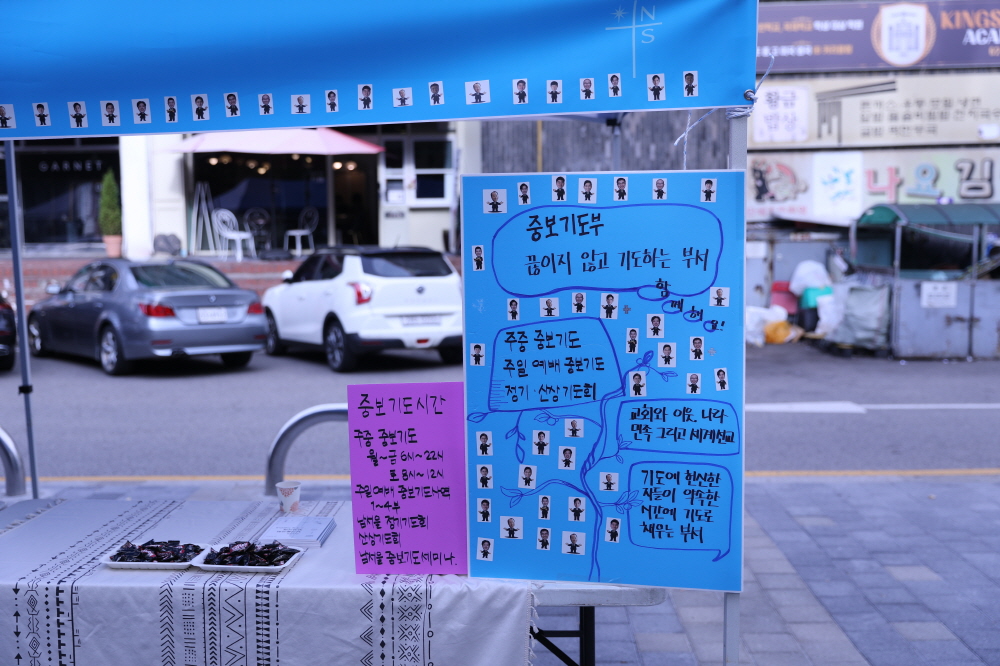 N
S
KINGS
GARNET
황금
밥상
나오김
중보기도부
끊이지 않고 기도하는 부서
함께해요!
주중 중보기도
주일 예배 중보기도
정기·산상기도회
교회와 이웃, 나라
민족 그리고 세계선교
기도에 헌신한
자들이 약속한
시간에 기도로
채우는 부서
중보기도시간
주중 중보기도
월~금 6시~22시
토 8시~12시
주일예배 중보기도사역
1~4부
남서울 정기기도회
산상기도회
남서울 중보기도세미나.